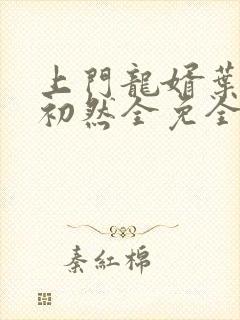 上門龍婿葉
初然全免全
秦紅棉